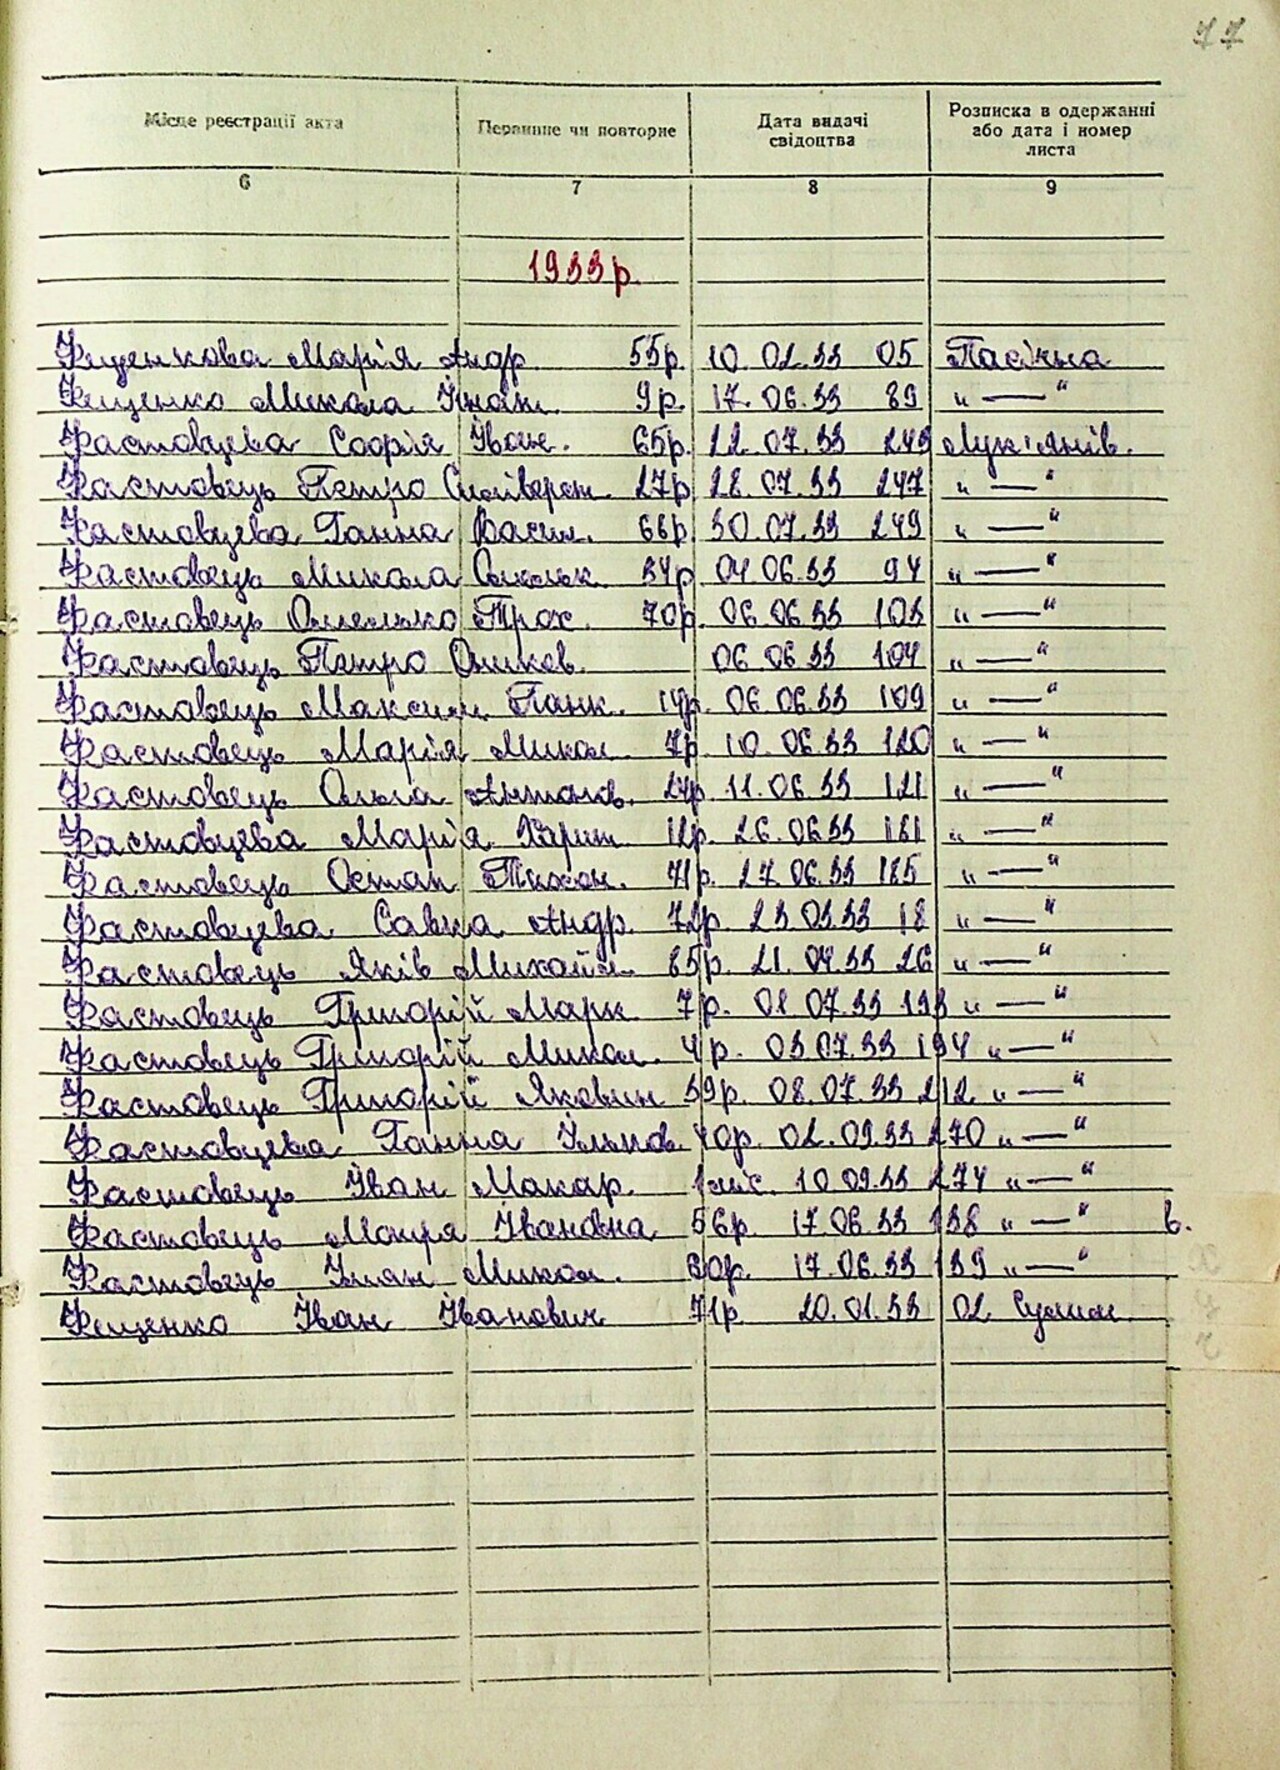 77
Місце реєстрації акта Первинне чи повторне Дата видачі свідоцтва Розписка в одержанні або дата і номер листа
6 7 8 9
1933 р.
Фещенкова Марія Андр 55р. 10.02.33 05 Пасічна
Фещенко Микола Ігнат. 9р. 17.06.33 89 "—"
Фастовцева Софія Іван. 65р. 22.07.33 249 Лук'янів.
Фастовець Петро Сильверст. 27р 28.07.33 247 "—"
Фастовцева Ганна Васил. 66р. 30.07.33 249 "—"
Фастовець Микола Омельк. 34р 04.06.33 94 "—"
Фастовець Омелько Трох. 70р. 06.06.33 103 "—"
Фастовець Петро 06.06.33 104 "—"
Фастовець Максим Панк. 14р. 06.06.33 109 "—"
Фастовець Марія Микол. 7р. 10.06.33 120 "—"
Фастовець Ольга Антонів. 24р. 11.06.33 121 "—"
Фастовцева Марія Харит. 12р. 26.06.33 181 "—"
Фастовець Остап Тихон. 71р. 27.06.33 185 "—"
Фастовцева Савка Андр. 72р. 23.03.33 18 "—"
Фастовець Яків Михайл. 85р. 21.04.33 26 "—"
Фастовець Григорій Марк. 7р. 01.07.33 193 "—"
Фастовець Григорій Микол. 4р. 03.07.33 194 "—"
Фастовець Григорій Якович 39р. 08.07.33 212 "—"
Фастовцева Ганна Ільків. 40р. 02.09.33 270 "—"
Фастовець Іван Макар. 1міс. 10.09.33 274 "—"
Фастовець Мотря Іванівна 56р. 17.06.33 138 "—" в.
Фастовець Улян Микол. 30р. 17.06.33 139 "—"
Фещенко Іван Іванович 71р 20.01.33 02